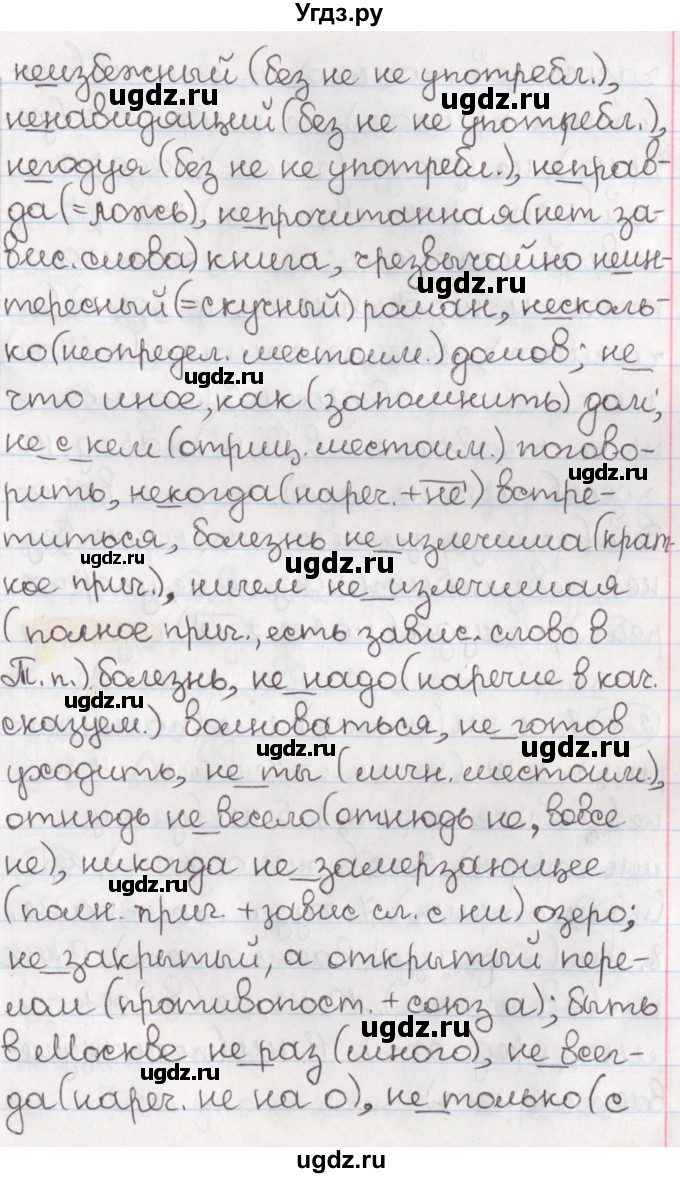 Угдз.ру
неизбежный (без не не употребл.),
ugdz.ru
ugdz.ru
ненавидящий (без не не употребл.),
негодуя (без не не употребл.), неправ-
ugdz.ru
да (=ложь), непрочитанная (нет за-
вис. слова) книга, чрезвычайно неин-
ugdz.ru
тересный (=скучный) роман, несколь-
ugdz.ru
ко (неопредел. местоим.) домов; не
ugdz.ru
что иное, как (запомнить) дом;
не с кем (отриц. местоим.) погово-
ugdz.ru
рить, некогда (нареч. + не) встре-
титься, болезнь не излечима (крат-
ugdz.ru
ugdz.ru
кое прич.), ничем не излечимая
(полное прич., есть завис. слово в
Т.п.) болезнь, не надо (наречие в кач.
сказуем.) волноваться, не готов
ugdz.ru
ugdz.ru
уходить, не ты (личн. местоим.),
отнюдь не весело (отнюдь не, вовсе
не), никогда не замерзающее
ugdz.ru
(полн. прич. + завис сл. с ни) озеро;
не закрытый, а открытый пере-
лом (противопост. + союз а); быть
ugdz.ru
в Москве не раз (много), не всег-
ugdz.ru
да (нареч. не на о), не только (с
ugdz.ru